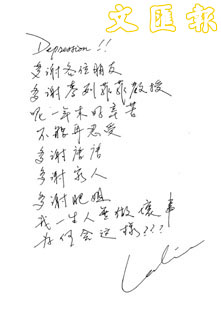 文匯報
Depression!!
多謝各位朋友
多謝麥列菲菲教授
呢一年來好辛苦
不能再忍受
多謝唐唐
多謝家人
多謝肥姐
我一生人無做壞事
為何會這樣???
Leslie